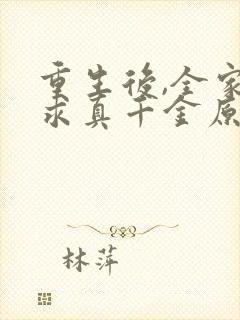 重生後,全家
求真千金原
林萍